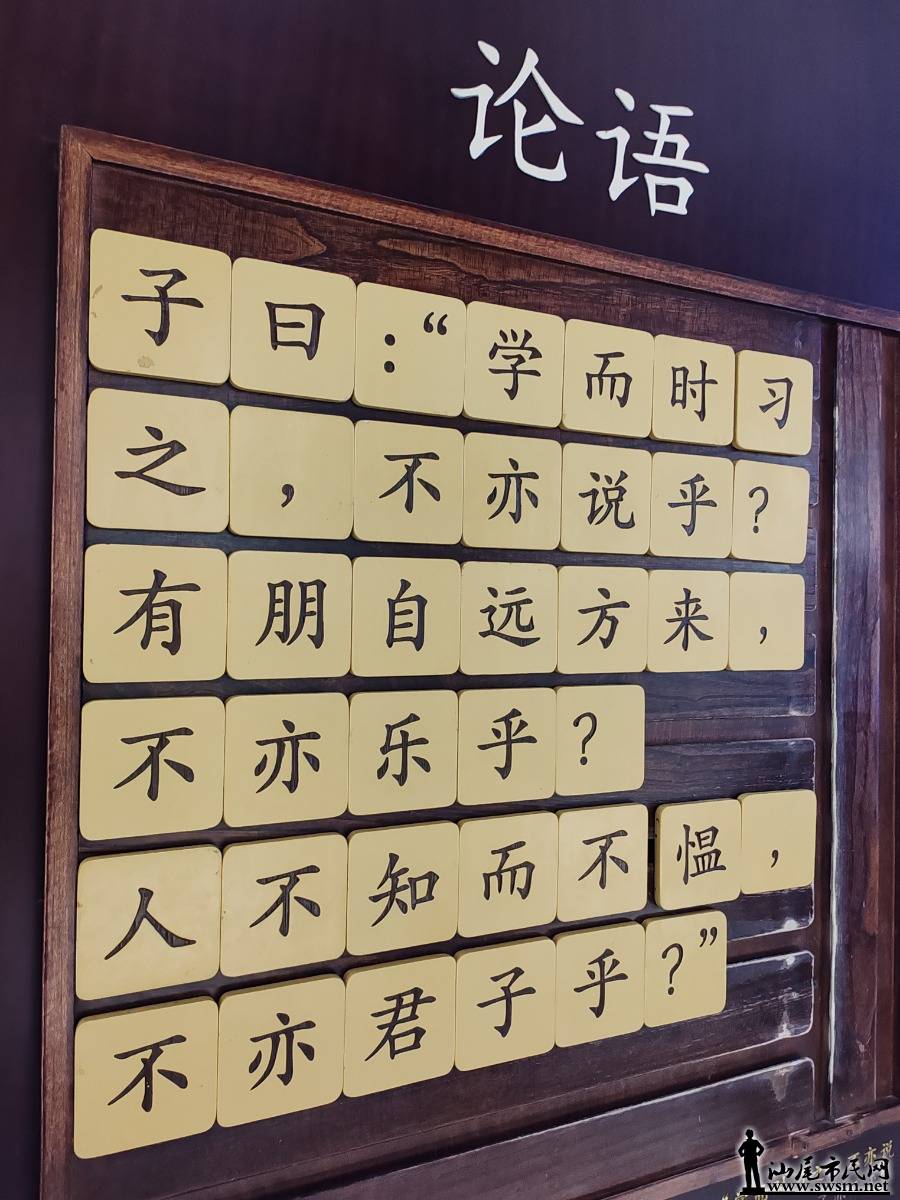 论语
子曰：“学而时习
之，不亦说乎？
有朋自远方来，
不亦乐乎？
人不知而不愠，
不亦君子乎？”
亦说
汕尾市民网
www.swsm.net